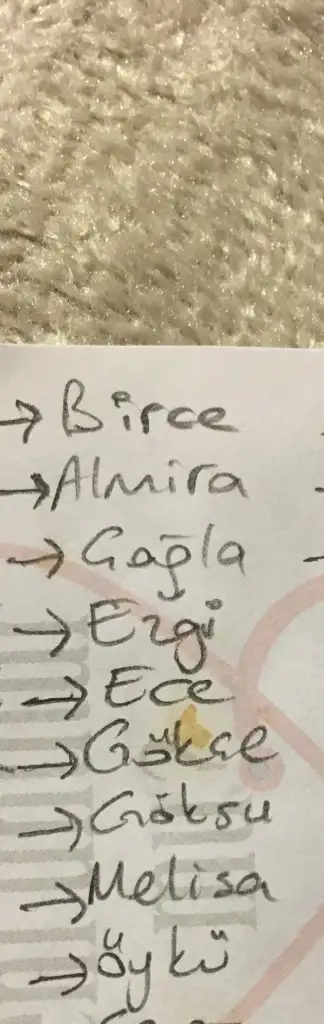 → Birce
→ Almira
→ Çağla
→ Ezgi
→ Ece
→ Gökçe
→ Göksu
→ Melisa
→ Öykü